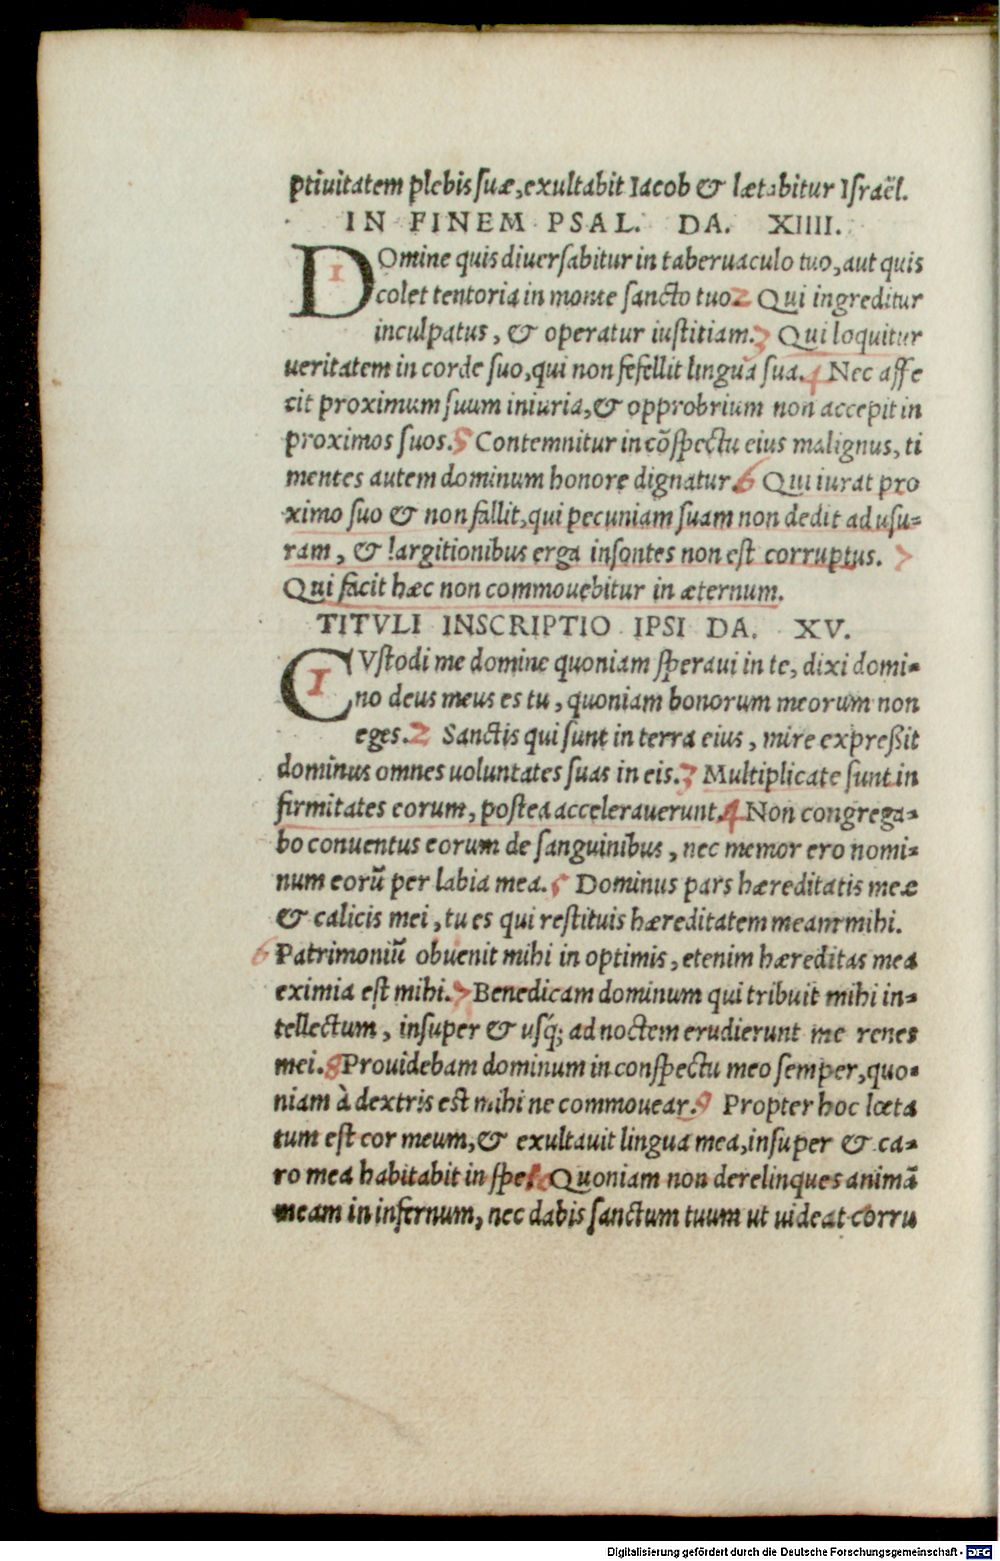 ptiuitatem plebis suæ, exultabit Iacob & lætabitur Israël.
IN FINEM PSAL. DA. XIIII.
1 DOmine quis diuersabitur in tabernaculo tuo, aut quis
colet tentoria in monte sancto tuo 2 Qui ingreditur
inculpatus, & operatur iustitiam. 3 Qui loquitur
ueritatem in corde suo, qui non fefellit lingua sua. 4 Nec affe
cit proximum suum iniuria, & opprobrium non accepit in
proximos suos. 5 Contemnitur in cõspectu eius malignus, ti
mentes autem dominum honore dignatur. 6 Qui iurat pro
ximo suo & non fallit, qui pecuniam suam non dedit ad usu-
ram, & largitionibus erga insontes non est corruptus. 7
Qui facit hæc non commouebitur in æternum.
TITVLI INSCRIPTIO IPSI DA. XV.
1 CVstodi me domine quoniam speraui in te, dixi domi-
no deus meus es tu, quoniam bonorum meorum non
eges. 2 Sanctis qui sunt in terra eius, mire expreßit
dominus omnes uoluntates suas in eis. 3 Multiplicate sunt in
firmitates eorum, postea accelerauerunt. 4 Non congrega-
bo conuentus eorum de sanguinibus, nec memor ero nomi-
num eorũ per labia mea. 5 Dominus pars hæreditatis meæ
& calicis mei, tu es qui restituis hæreditatem meam mihi.
6 Patrimoniũ obuenit mihi in optimis, etenim hæreditas mea
eximia est mihi. 7 Benedicam dominum qui tribuit mihi in-
tellectum, insuper & usq; ad noctem erudierunt me renes
mei. 8 Prouidebam dominum in conspectu meo semper, quo-
niam à dextris est mihi ne commouear. 9 Propter hoc læta
tum est cor meum, & exultauit lingua mea, insuper & ca-
ro mea habitabit in spe. 10 Quoniam non derelinques animã
meam in infernum, nec dabis sanctum tuum ut uideat corru
Digitalisierung gefördert durch die Deutsche Forschungsgemeinschaft - DFG